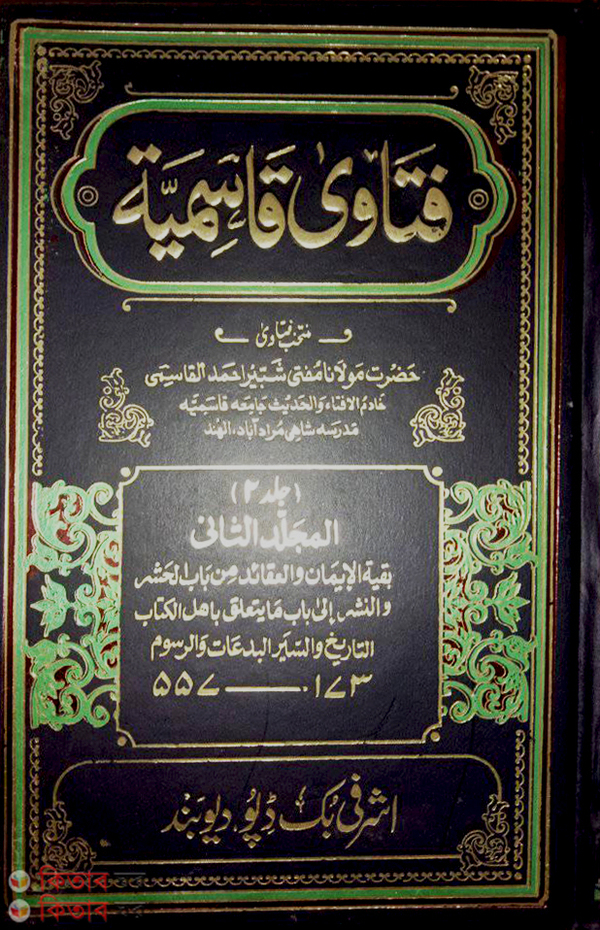 فتاویٰ قاسمیۃ
منتخب فتاویٰ
حضرت مولانا مفتی شبیر احمد القاسمی
خادم الافتاء والحدیث جامعہ قاسمیہ
مدرسہ شاہی مراد آباد، الہند
(جلد ۲)
المجلد الثانی
بقیة الإیمان والعقائد من باب الحشر
والنشر إلی باب ما یتعلق باهل الکتاب
التاریخ والسیر البدعات والرسوم
۱۷۳ــــــ۵۵۷
اشرفی بک ڈپو، دیوبند
কিতাব
কিতাব